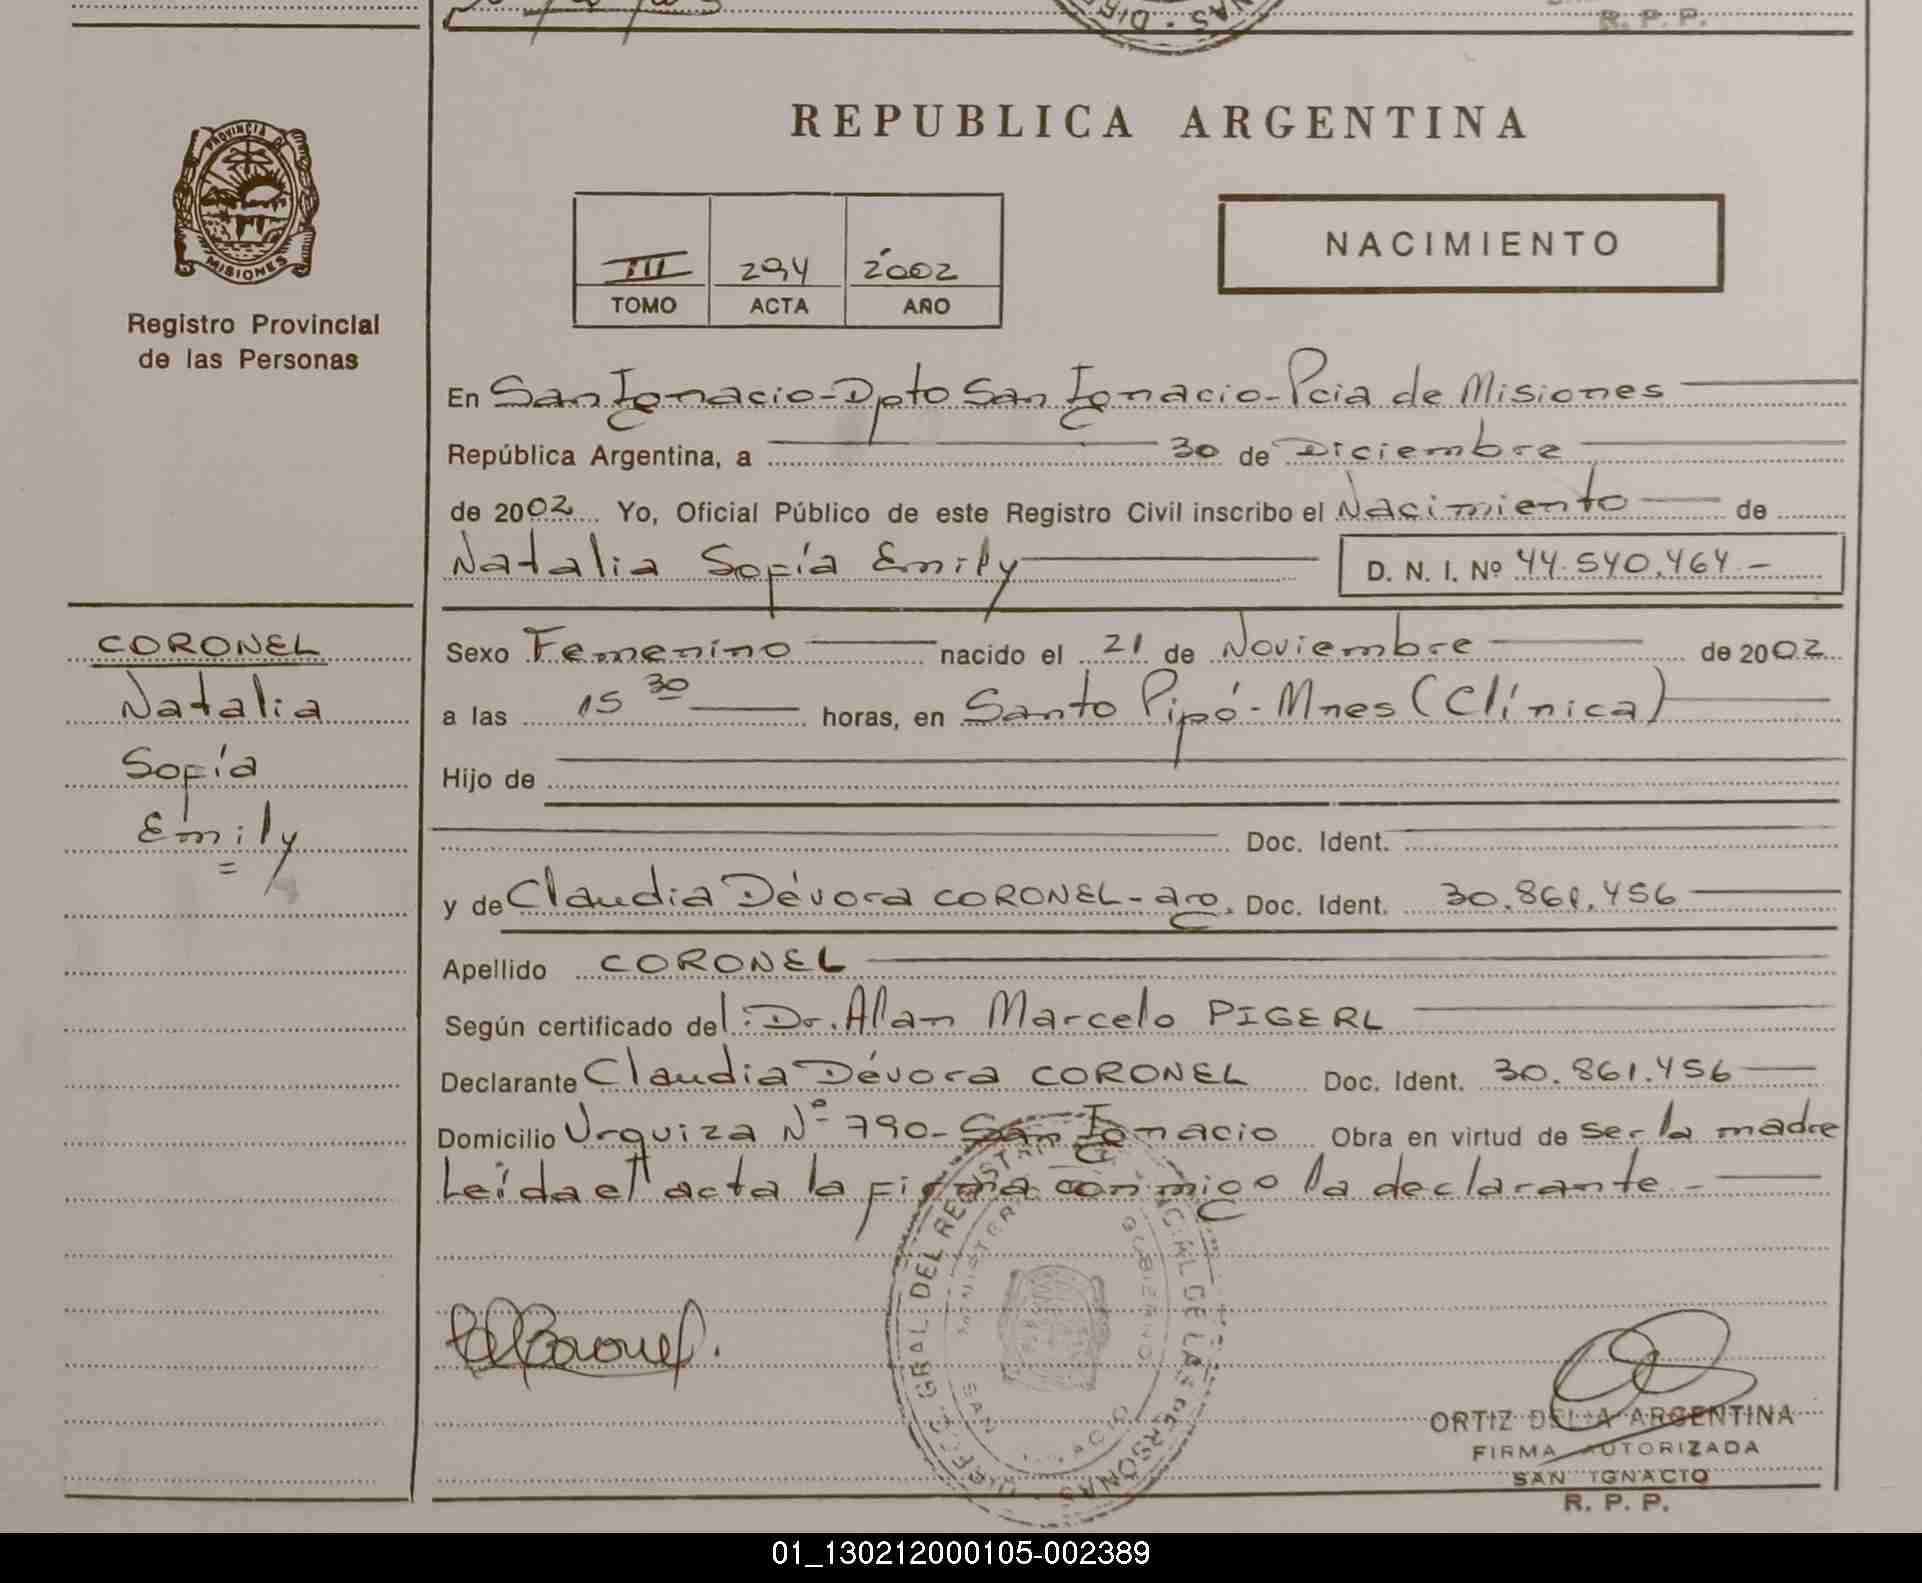 R. P. P.
REPUBLICA ARGENTINA
PROVINCIA DE
MISIONES
Registro Provincial
de las Personas
III 294 2002
TOMO ACTA AÑO
NACIMIENTO
En San Ignacio-Dpto San Ignacio-Pcia de Misiones
República Argentina, a 30 de Diciembre
de 2002 Yo, Oficial Público de este Registro Civil inscribo el Nacimiento de
Natalia Sofía Emily D. N. I. Nº 44.540.464.-
CORONEL
Natalia
Sofía
Emily
Sexo Femenino nacido el 21 de Noviembre de 2002
a las 15 30 horas, en Santo Pipó-Mnes (Clínica)
Hijo de
Doc. Ident.
y de Claudia Dévora CORONEL-arg. Doc. Ident. 30.861.456
Apellido CORONEL
Según certificado del: Dr. Alan Marcelo PIGERL
Declarante Claudia Dévora CORONEL Doc. Ident. 30.861.456
Domicilio Urquiza Nº 790-San Ignacio Obra en virtud de ser la madre
Leída el acta la firma conmigo la declarante.-
GRAL. DEL REGISTRO DE LAS PERSONAS
ORTIZ DELIA ARGENTINA
FIRMA AUTORIZADA
SAN IGNACIO
R. P. P.
01_130212000105-002389